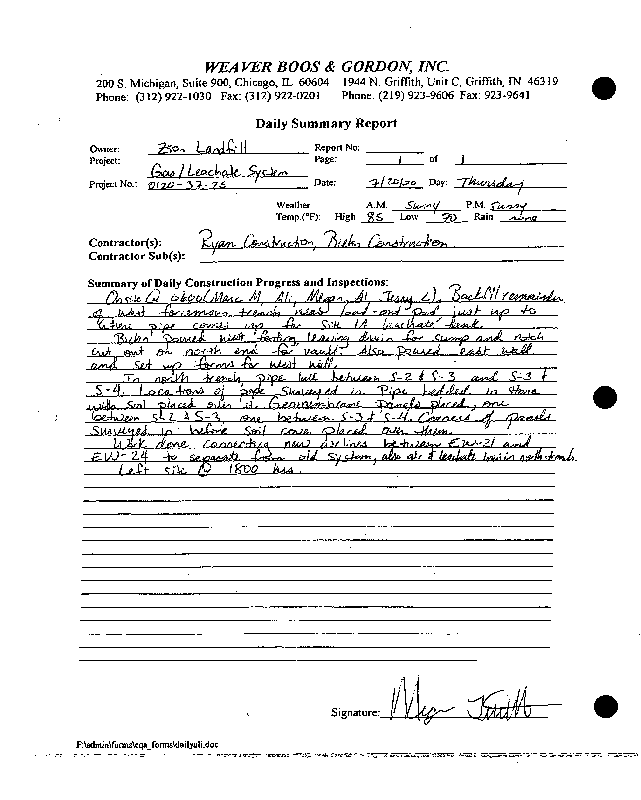 WEAVER BOOS & GORDON, INC.
200 S. Michigan, Suite 900, Chicago, IL 60604 1944 N. Griffith, Unit C, Griffith, IN 46319
Phone: (312) 922-1030 Fax: (312) 922-0201 Phone: (219) 923-9606 Fax: 923-9641
Daily Summary Report
Owner: Zion Landfill Report No:
Project: Gas/Leachate System Page: 1 of 1
Project No.: 0120-37-25 Date: 7/20/00 Day: Thursday
Weather A.M. Sunny P.M. Sunny
Temp.(°F): High 85 Low 70 Rain none
Contractor(s): Ryan Construction, Construction
Contractor Sub(s):
Summary of Daily Construction Progress and Inspections:
Onsite @ 0600 (Marc M, Al, Megan, Al, Jerry L). Backfill remainder
of west trench near load-out pad, just up to
where pipe comes up for Site 1A leachate tank.
poured west footing leaving drain for sump and notch
cut out on north end for vault. Also poured east wall
and set up forms for west wall.
In north trench, pipe laid between S-2 & S-3 and S-3 &
S-4. Locations of pipe surveyed in. Pipe bedded in stone
with soil placed over it. Geomembrane panels placed, one
between S-2 & S-3, one between S-3 & S-4. Corners of panels
surveyed in before soil cover placed over them.
Work done connecting new airlines between EW-21 and
EW-24 to separate from old system, also air & leachate lines in north trench.
Left site @ 1800 hrs.
Signature: Megan
F:\admin\forms\cqa_forms\dailyuli.doc